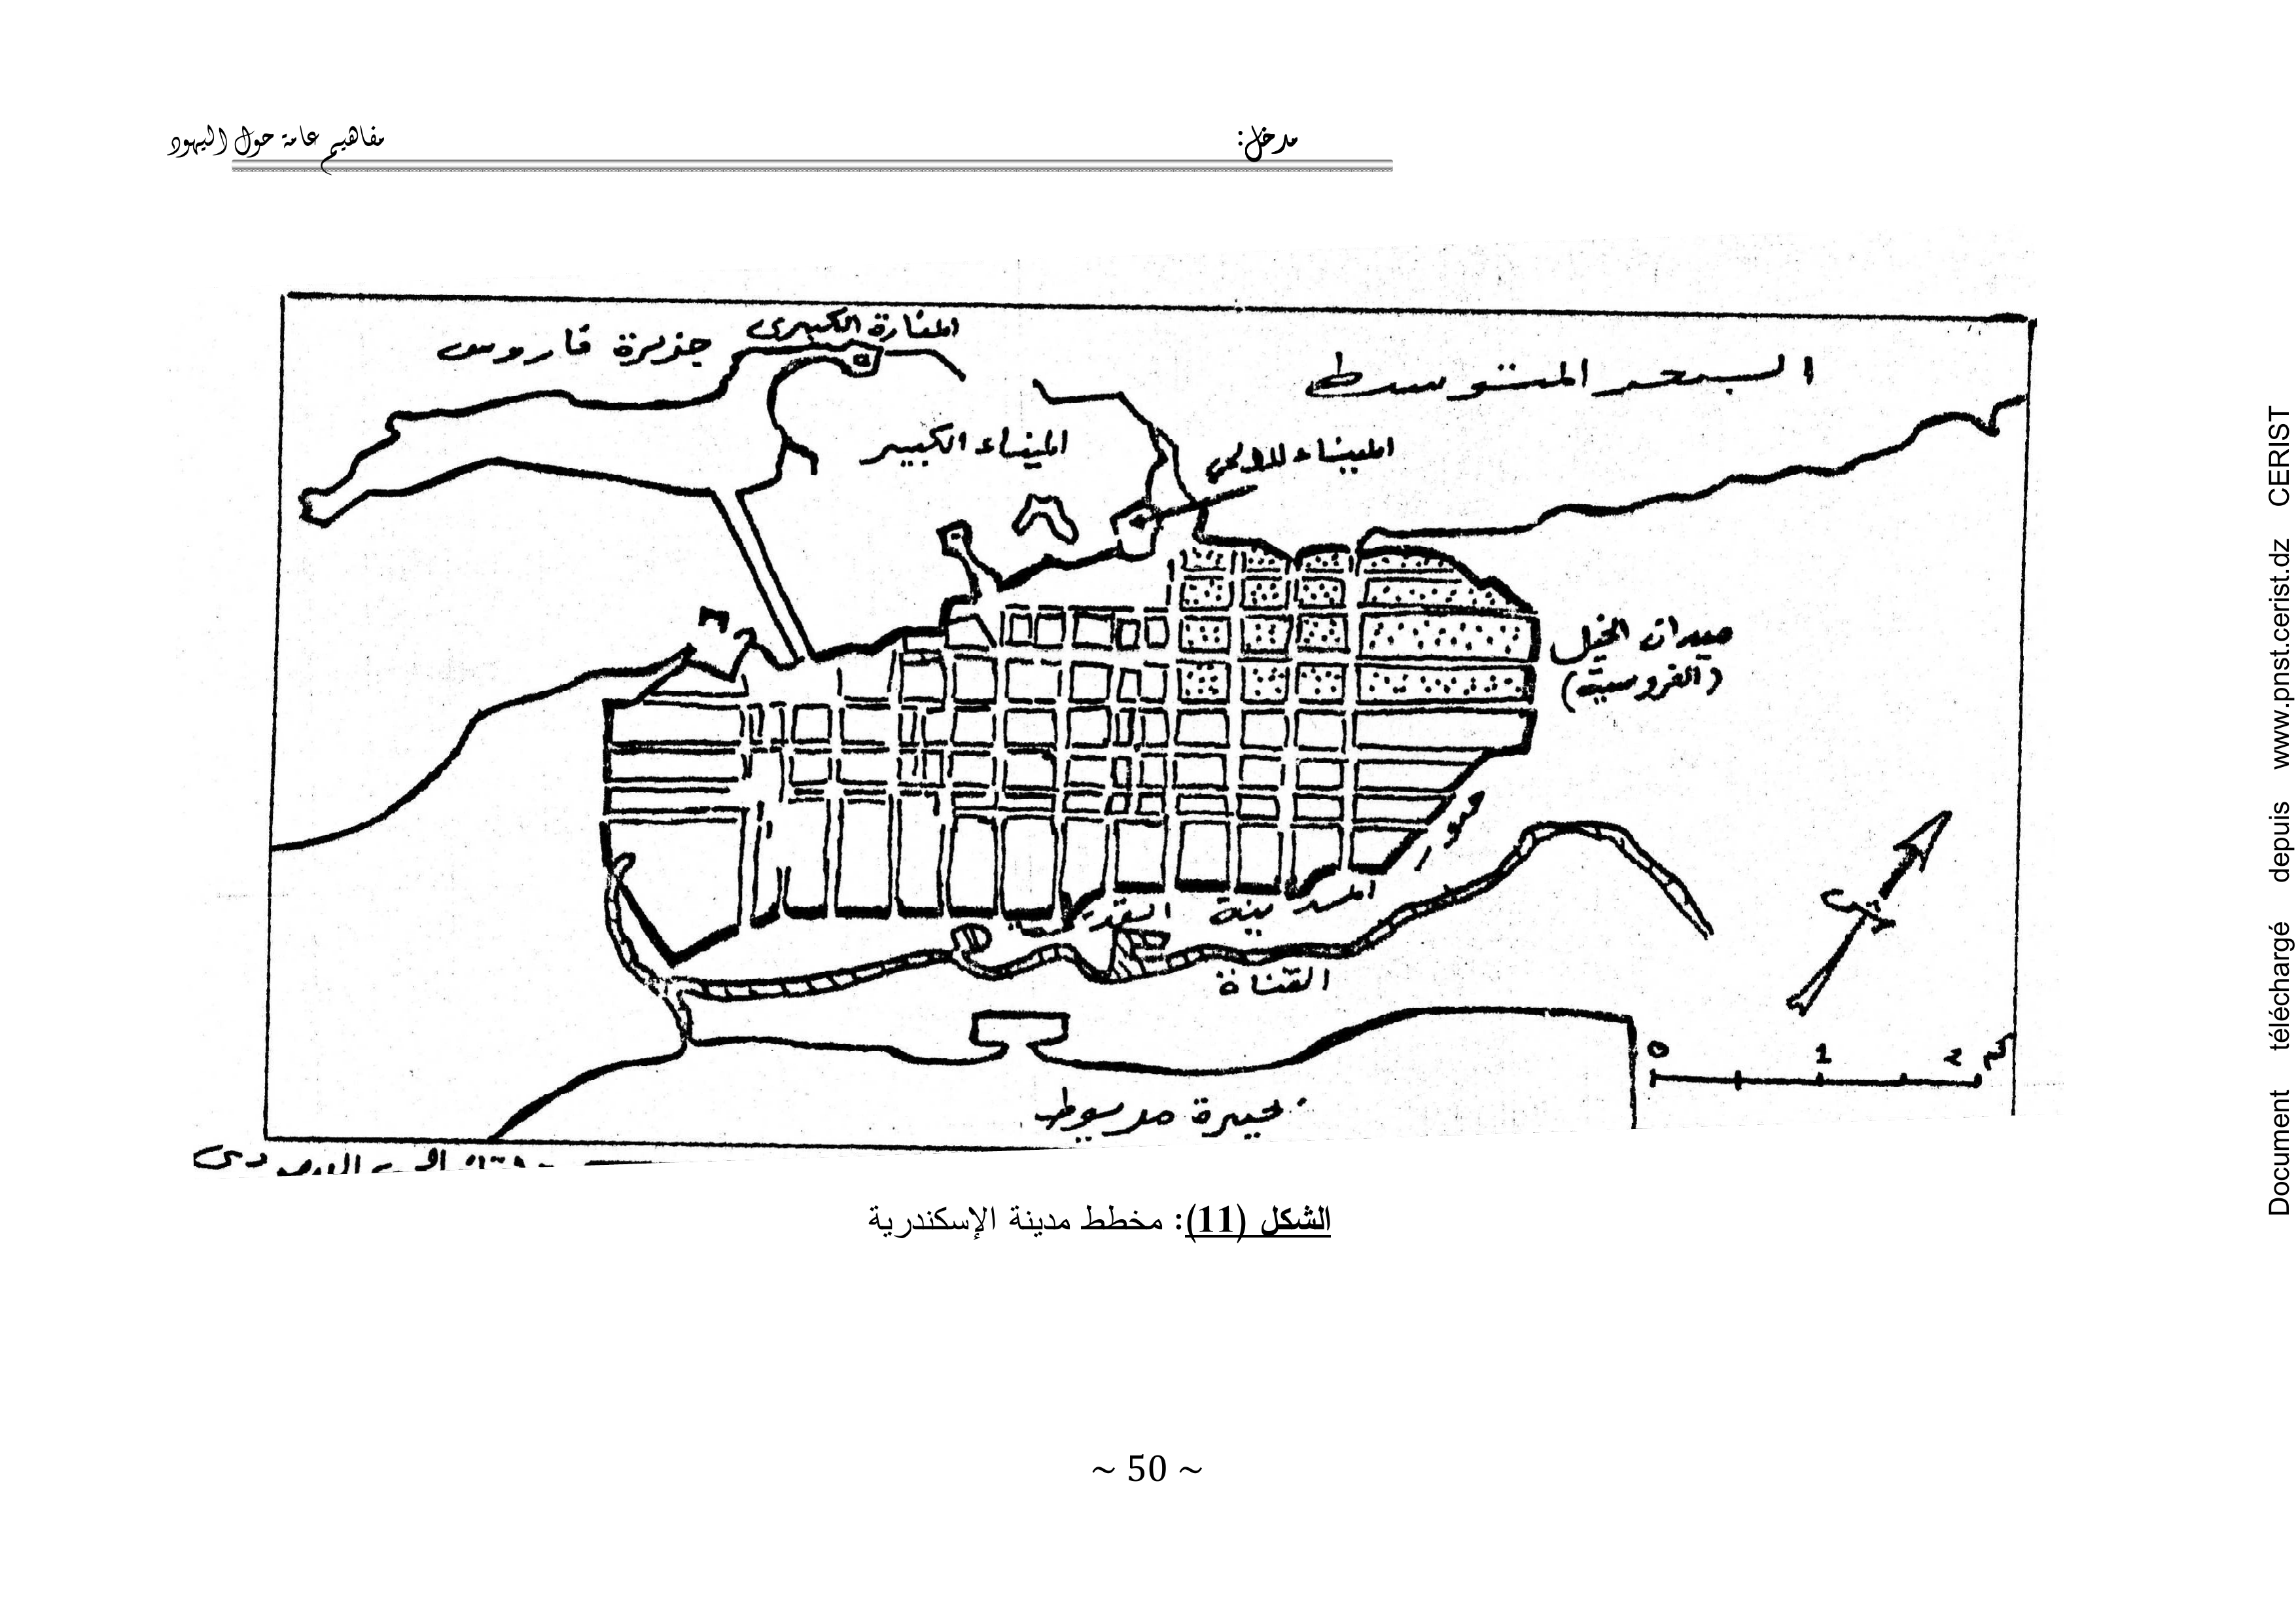 مدخل: مفاهيم عامة حول اليهود
جزيرة فاروس
المنارة الكبيرى
البحر المتوسط
الميناء الكبير
الميناء
ميدان الخيل
(الفروسية)
سور المدينة القديمة
القناة
ش
0 1 2 كم
بحيرة مريوط
الشكل (11): مخطط مدينة الإسكندرية
~ 50 ~
Document téléchargé depuis www.pnst.cerist.dz CERIST